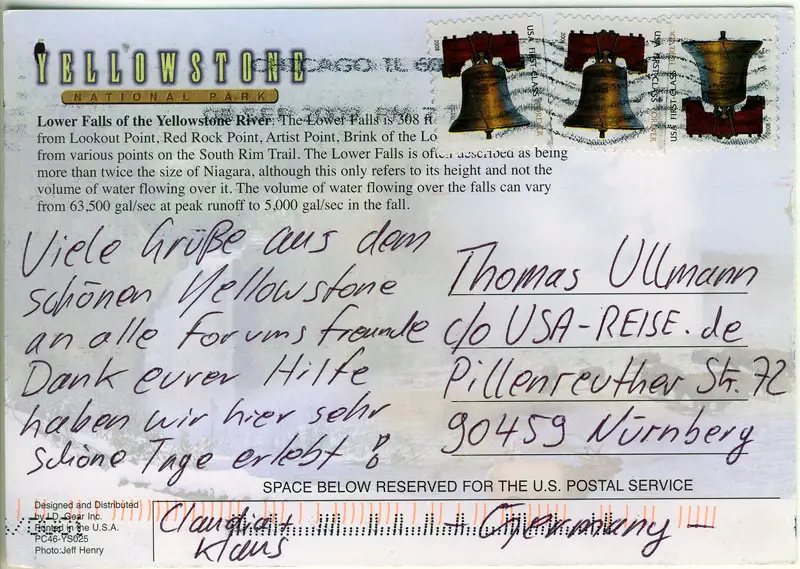 YELLOWSTONE
NATIONAL PARK
CHICAGO IL
USA FIRST-CLASS FOREVER
USA FIRST-CLASS FOREVER
USA FIRST-CLASS FOREVER
Lower Falls of the Yellowstone River: The Lower Falls is 308 ft
from Lookout Point, Red Rock Point, Artist Point, Brink of the Lo
from various points on the South Rim Trail. The Lower Falls is often described as being
more than twice the size of Niagara, although this only refers to its height and not the
volume of water flowing over it. The volume of water flowing over the falls can vary
from 63,500 gal/sec at peak runoff to 5,000 gal/sec in the fall.
Viele Grüße aus dem
schönen Yellowstone
an alle Forumsfreunde
Dank eurer Hilfe
haben wir hier sehr
schöne Tage erlebt !
Claudia +
Klaus
Thomas Ullmann
c/o USA-REISE.de
Pillenreuther Str. 72
90459 Nürnberg
SPACE BELOW RESERVED FOR THE U.S. POSTAL SERVICE
- Germany -
Designed and Distributed
by I.D. Gear Inc.
Printed in the U.S.A.
PC46-YS025
Photo:Jeff Henry